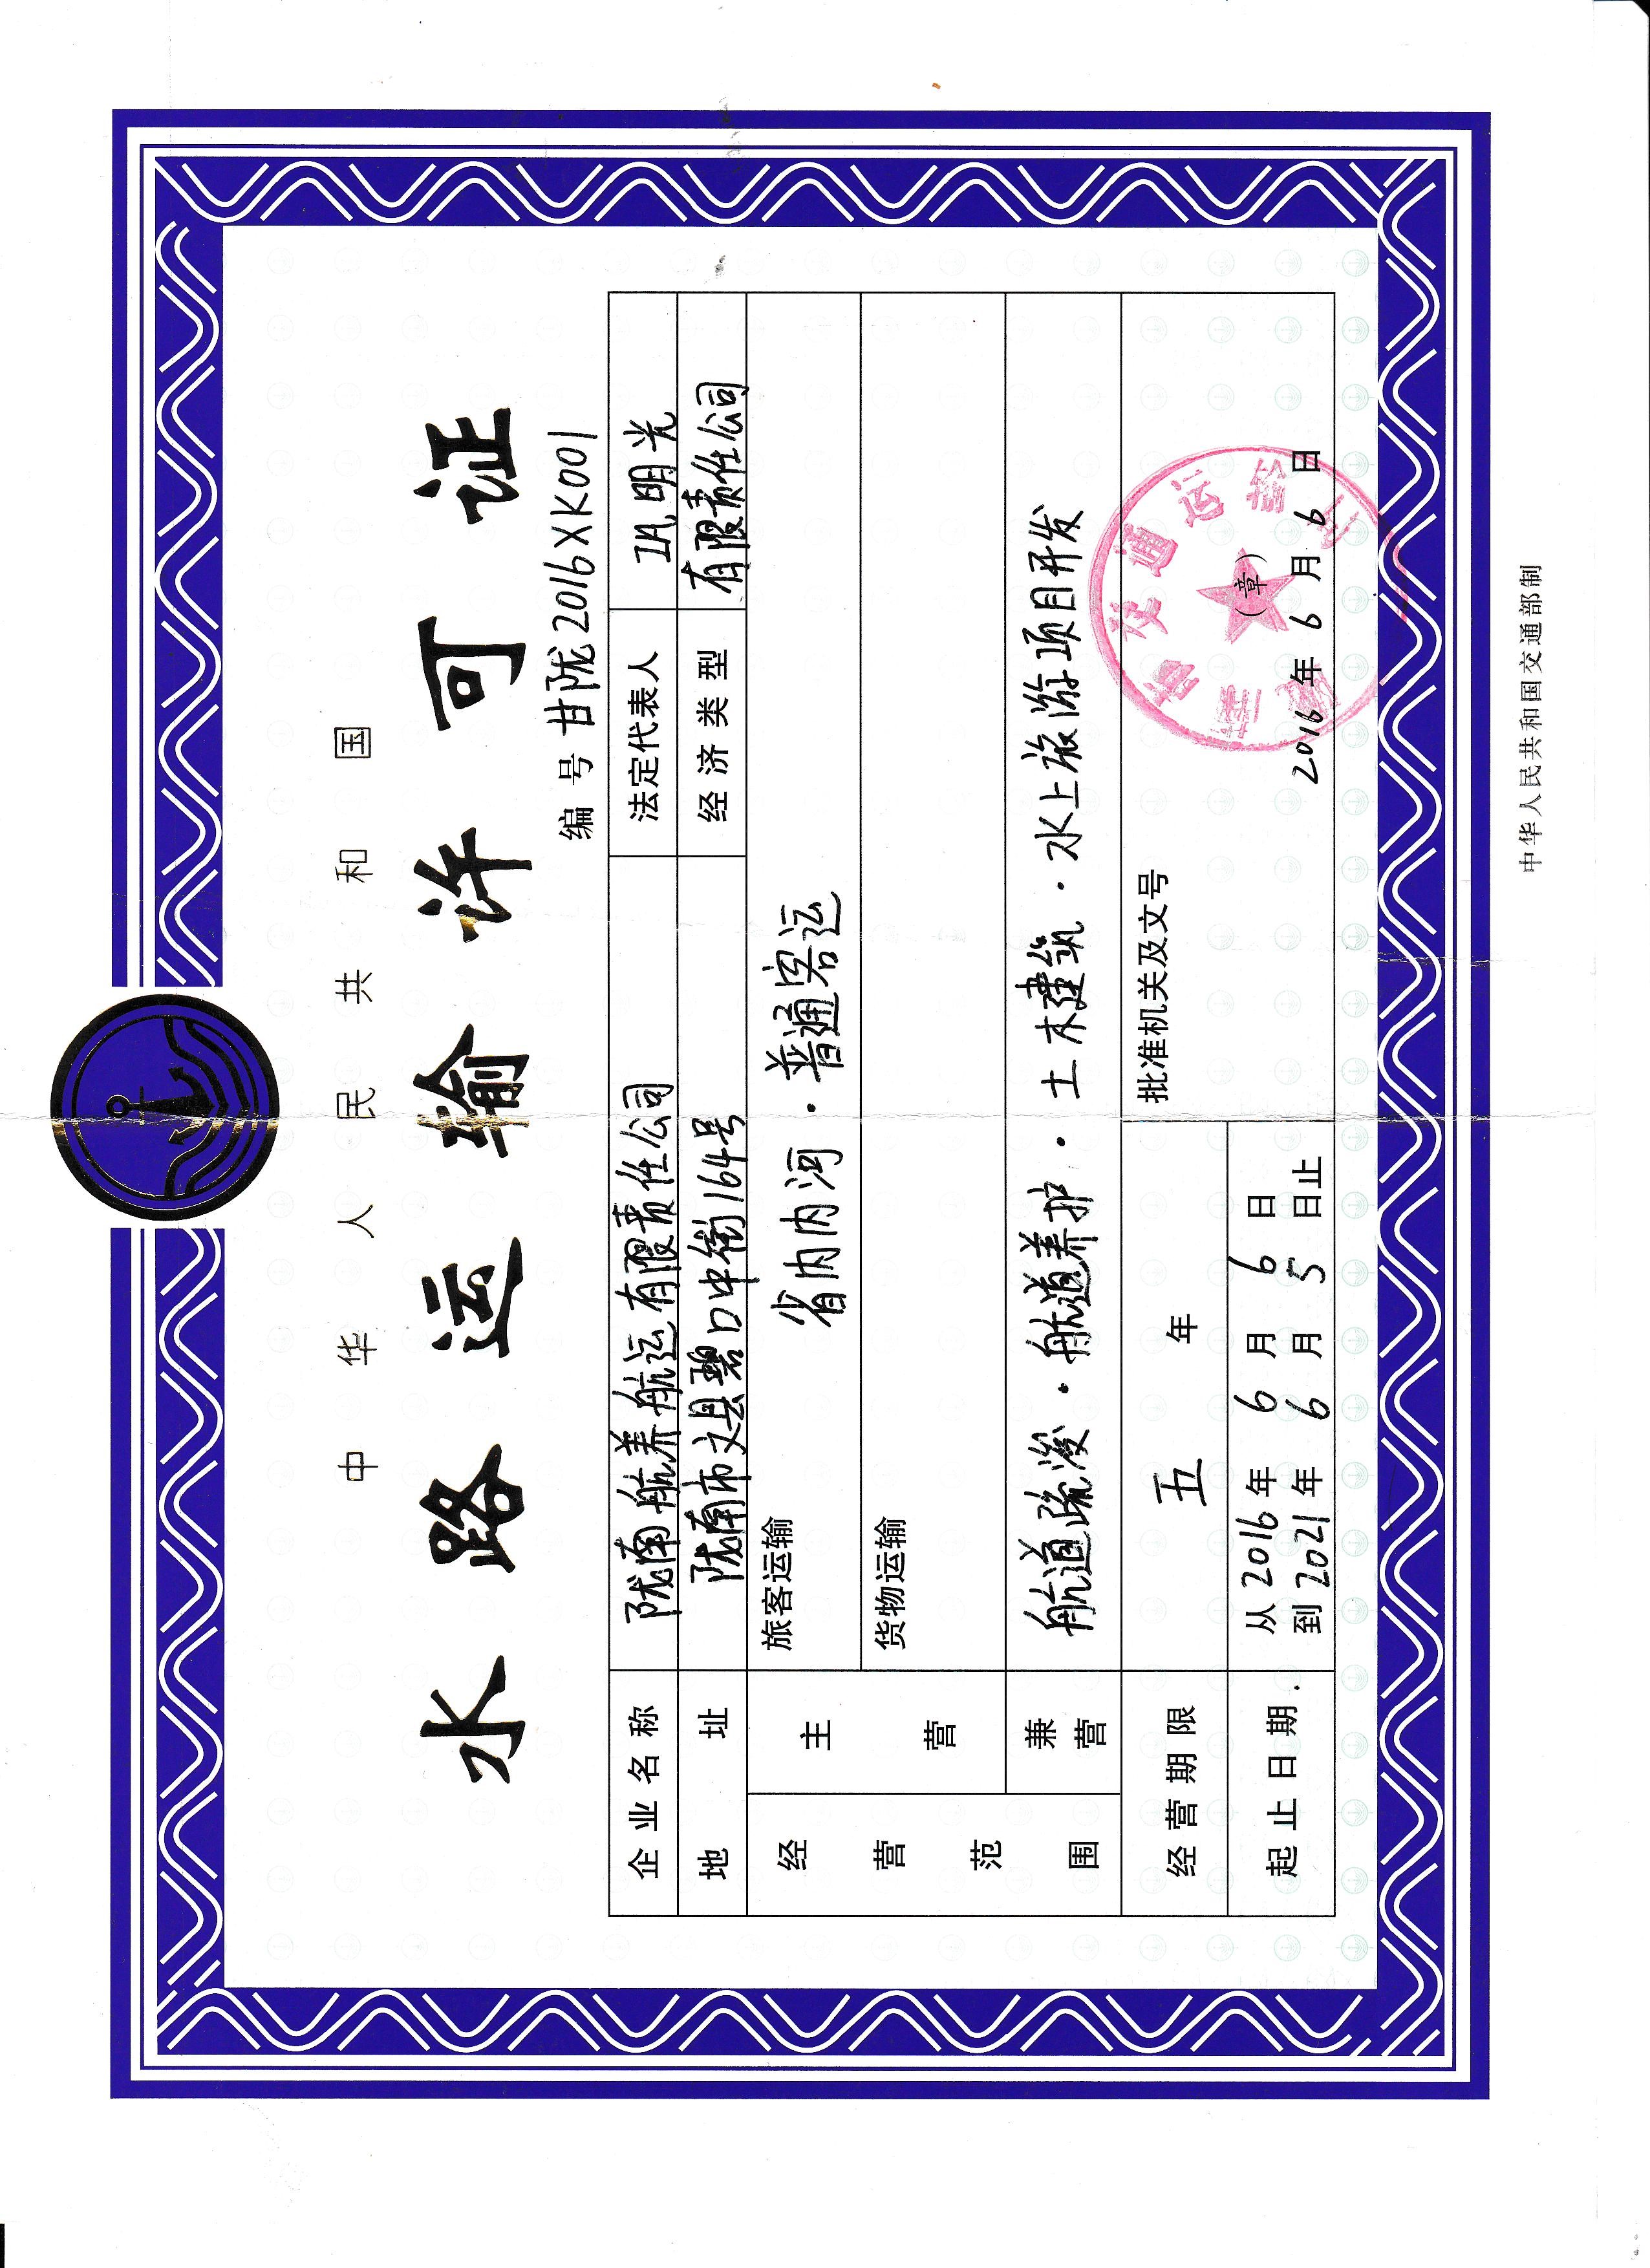 中华人民共和国
水路运输许可证
编号 甘陇2016XK001
企业名称 陇南航养航运有限责任公司 法定代表人 巩明光
地址 陇南市文县碧口中街164号 经济类型 有限责任公司
经营范围 主营 旅客运输 省内内河·普通客运
货物运输
兼营 航道疏浚·航道养护·土木建筑·水上旅游项目开发
经营期限 五 年
批准机关及文号
起止日期 从2016年6月6日
到2021年6月5日止
陇南市交通运输
(章)
2016年6月6日
中华人民共和国交通部制